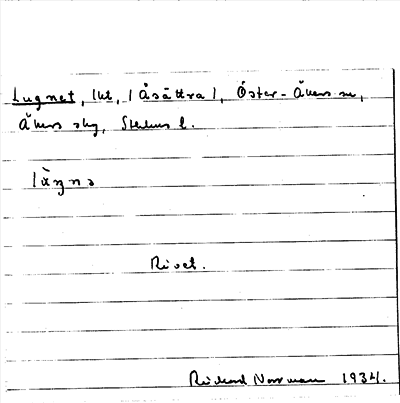 Lugnet, lht, (Åsättra), Öster-Åkers sn,
Åkers skg, Sthlms l.
làŋnə
Rivet.
Rickard Norrman 1934.